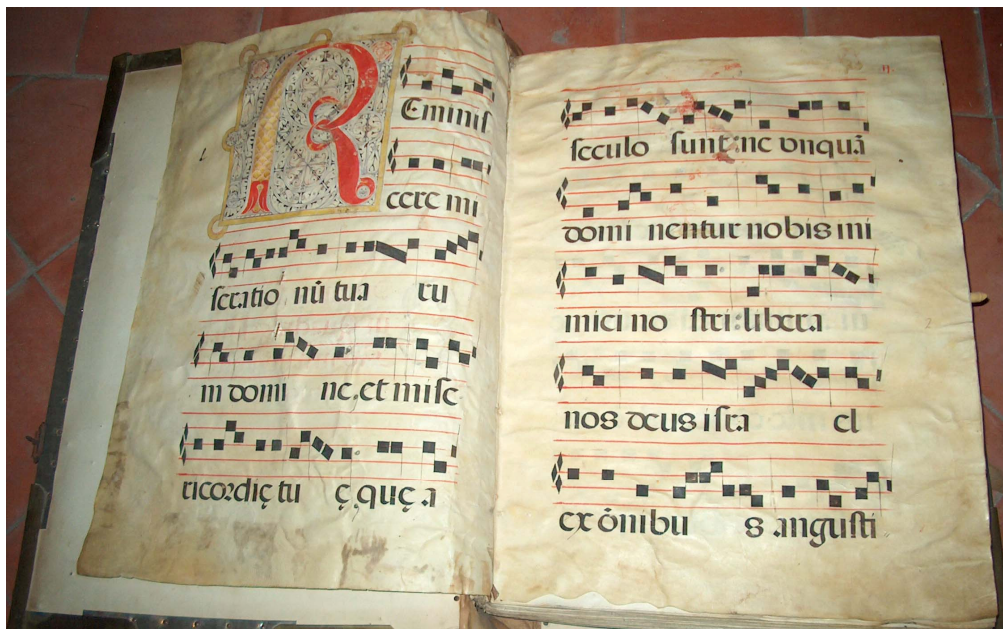 REminis
cere mi
seratio nũ tua ru
m domi ne. et mise
ricordię tu ę. quę a
seculo sunt: ne vnquã
domi nentur nobis ini
mici no stri: libera
nos deus isra el
ex õnibu s angusti